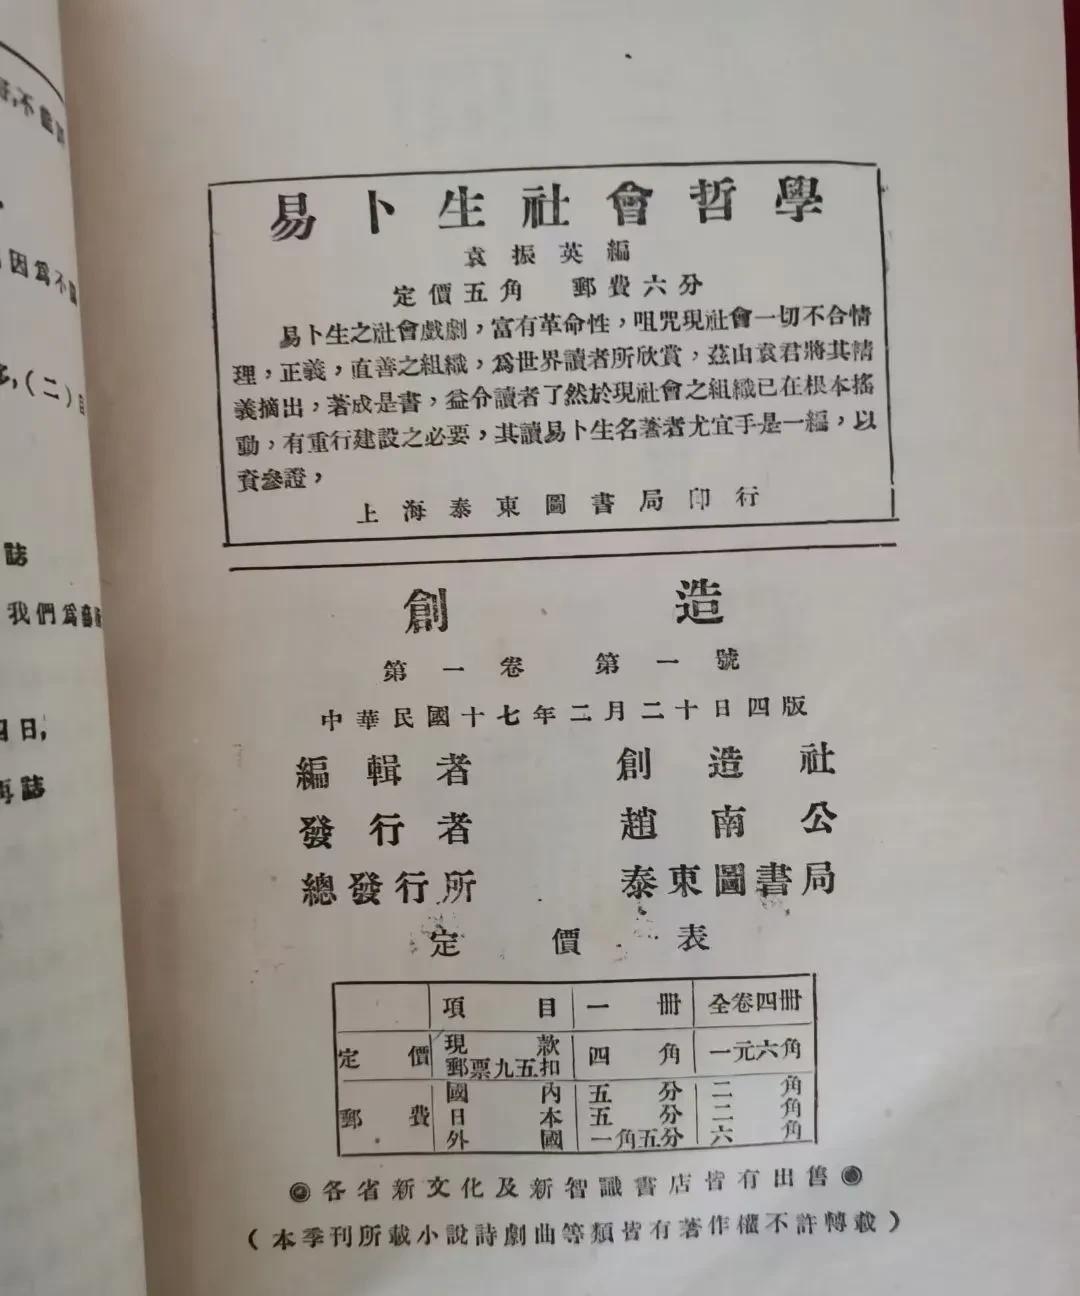 易卜生社會哲學
袁振英編
定價五角 郵費六分
易卜生之社會戲劇，富有革命性，咀咒現社會一切不合情
理，正義，直善之組織，爲世界讀者所欣賞，茲由袁君將其精
義摘出，著成是書，益令讀者了然於現社會之組織已在根本搖
動，有重行建設之必要，其讀易卜生名著者尤宜手是一編，以
資參證，
上海泰東圖書局印行
創造
第一卷 第一號
中華民國十七年二月二十日四版
編輯者 創造社
發行者 趙南公
總發行所 泰東圖書局
定價表
項目 一冊 全卷四冊
定價 現款 郵票九五扣 四角 一元六角
郵費 國內 五分 二角
日本 五分 二角
外國 一角五分 六角
各省新文化及新智識書店皆有出售
（本季刊所載小說詩劇曲等類皆有著作權不許轉載）
因爲不
（二）
誌
我們爲
四日，
再誌